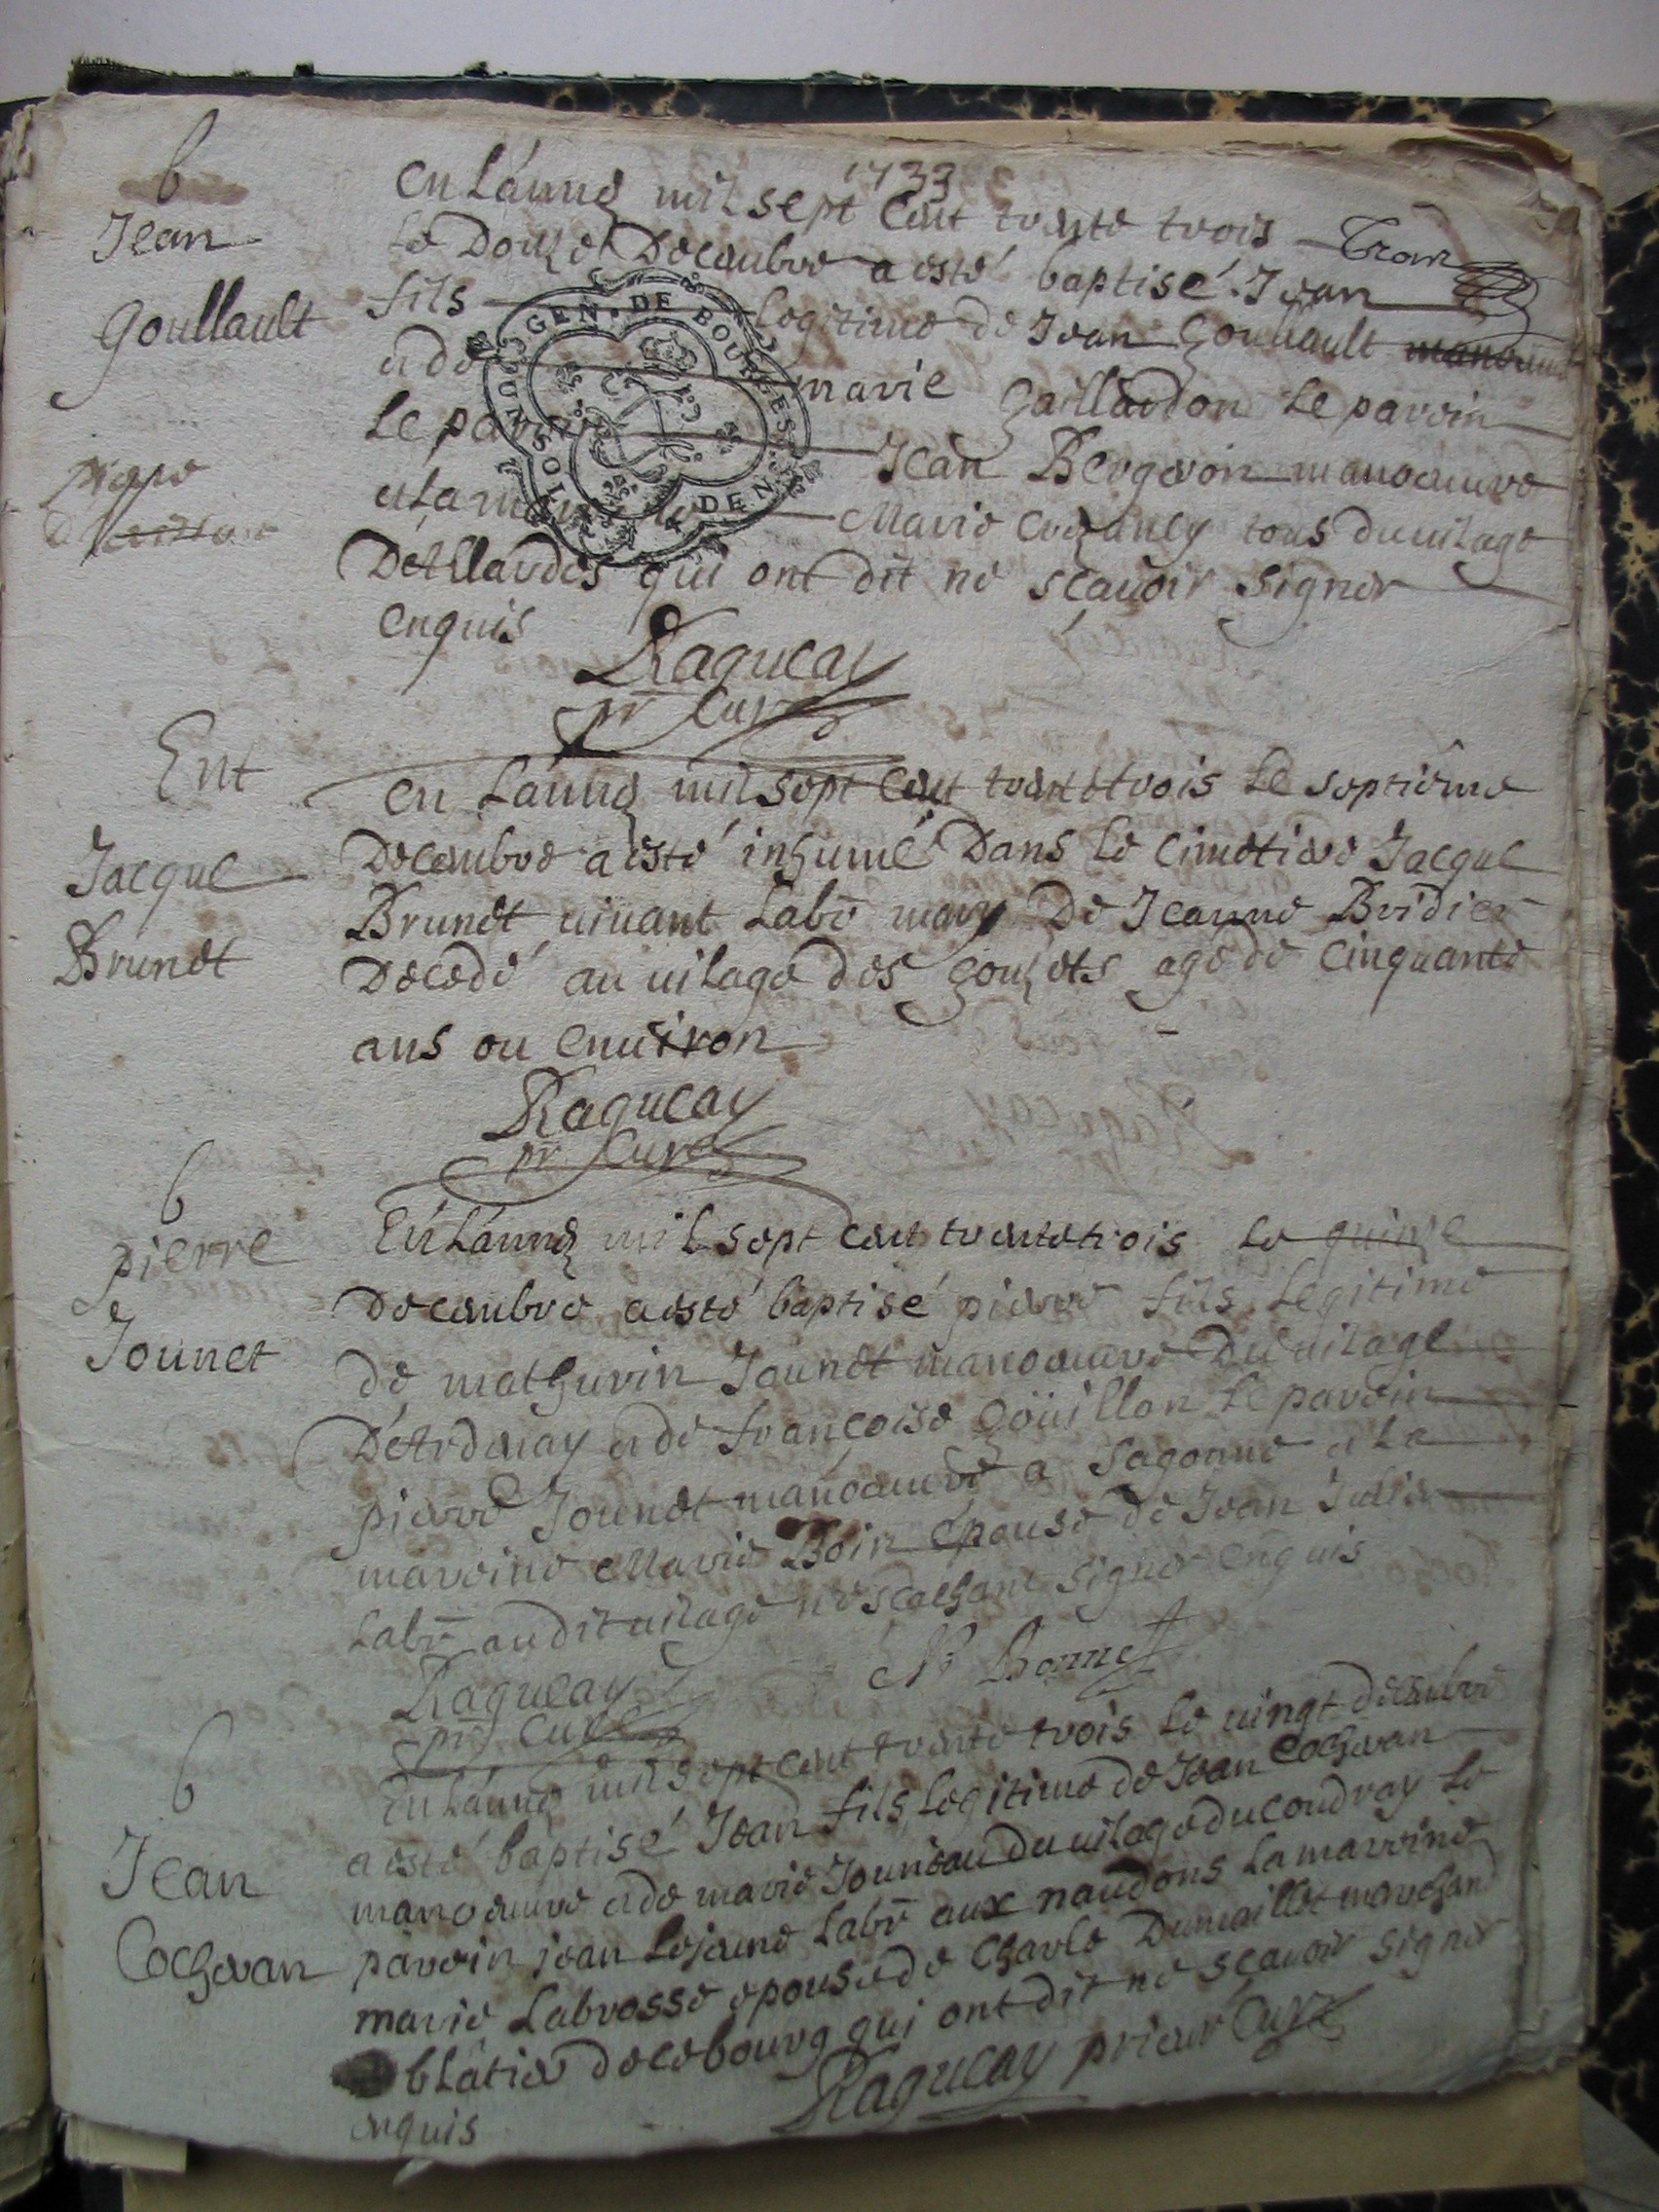 1733
b
Jean
Goullault
en lánnéę mil sept cent trente trois
le Douze Decembre a esté baptisé Jean
fils legitime de Jean Goullault
et de marie Gaillardon Le parein
Le parein Jean Bergeron manoeuvre
et la mareine Marie tous du uilage
Détslardes qui ont dit ne sçauoir signer
enquis
Ragueay
pr Curé
GEN. DE BOURGES
Ent
Jacque
Brunet
en Lánnéę mil sept cent trente trois Le septiême
Decembre a esté inhumé Dans le cimetiere Jacque
Brunet uiuant Labr̄ mary De Jeanne Bridier
Decedé au uilage des gouzets agé de Cinquante
ans ou enuiron
Ragueay
pr Curé
b
pierre
Jounet
En Lánnéę mil sept cent trente trois Le quinze
Decembre a esté baptisé pierre fils Legitime
de mathurin Jounet manoeuvre Du uilage
D'Ardenay et de françoise Goüillon Le parein
pierre Jounet manoeuvre a Sagonne et La
mareine Marie Boin épouse de Jean
Labr̄ audit uilage ne scachant signer enquis
Ragueay
pr Curé
Bonnet
b
Jean
Cocheran
En Lánnéę mil sept cent trente trois Le uingt decembre
a esté baptisé Jean fils Legitime de Jean Cocheran
manoeuvre et de marie Jouneau du uilage du Coudray Le
parein jean Lejeune Labr̄ aux naudons La mareine
marie Labrosse epouse de Charle Dumaillet marchand
blatier de ce bourg qui ont dit ne sçauoir signer
enquis
Ragueay prieur Curé